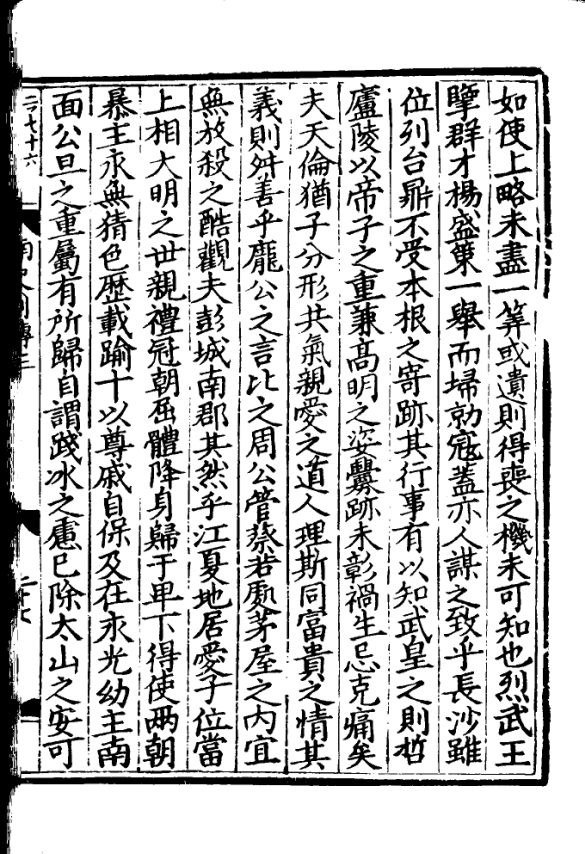 如使上略未盡一筭或遺則得喪之機未可知也烈武王
犨群才楊盛策一舉而埽勍寇蓋亦人謀之致乎長沙雖
位列台鼎不受本根之寄跡其行事有以知武皇之則哲
廬陵以帝子之重兼髙明之姿釁跡未彰禍生忌克痛矣
夫天倫猶子分形共氣親愛之道人理斯同富貴之情其
義則舛善乎龐公之言比之周公管蔡若處茅屋之内宜
無放殺之酷觀夫彭城南郡其然乎江夏地居愛子位當
上相大明之世親禮冠朝屈體降身歸于卑下得使兩朝
暴主永無猜色歷載踰十以尊戚自保及在永光幼主南
面公旦之重屬有所歸自謂踐冰之慮已除太山之安可
南史列傳三
二十七